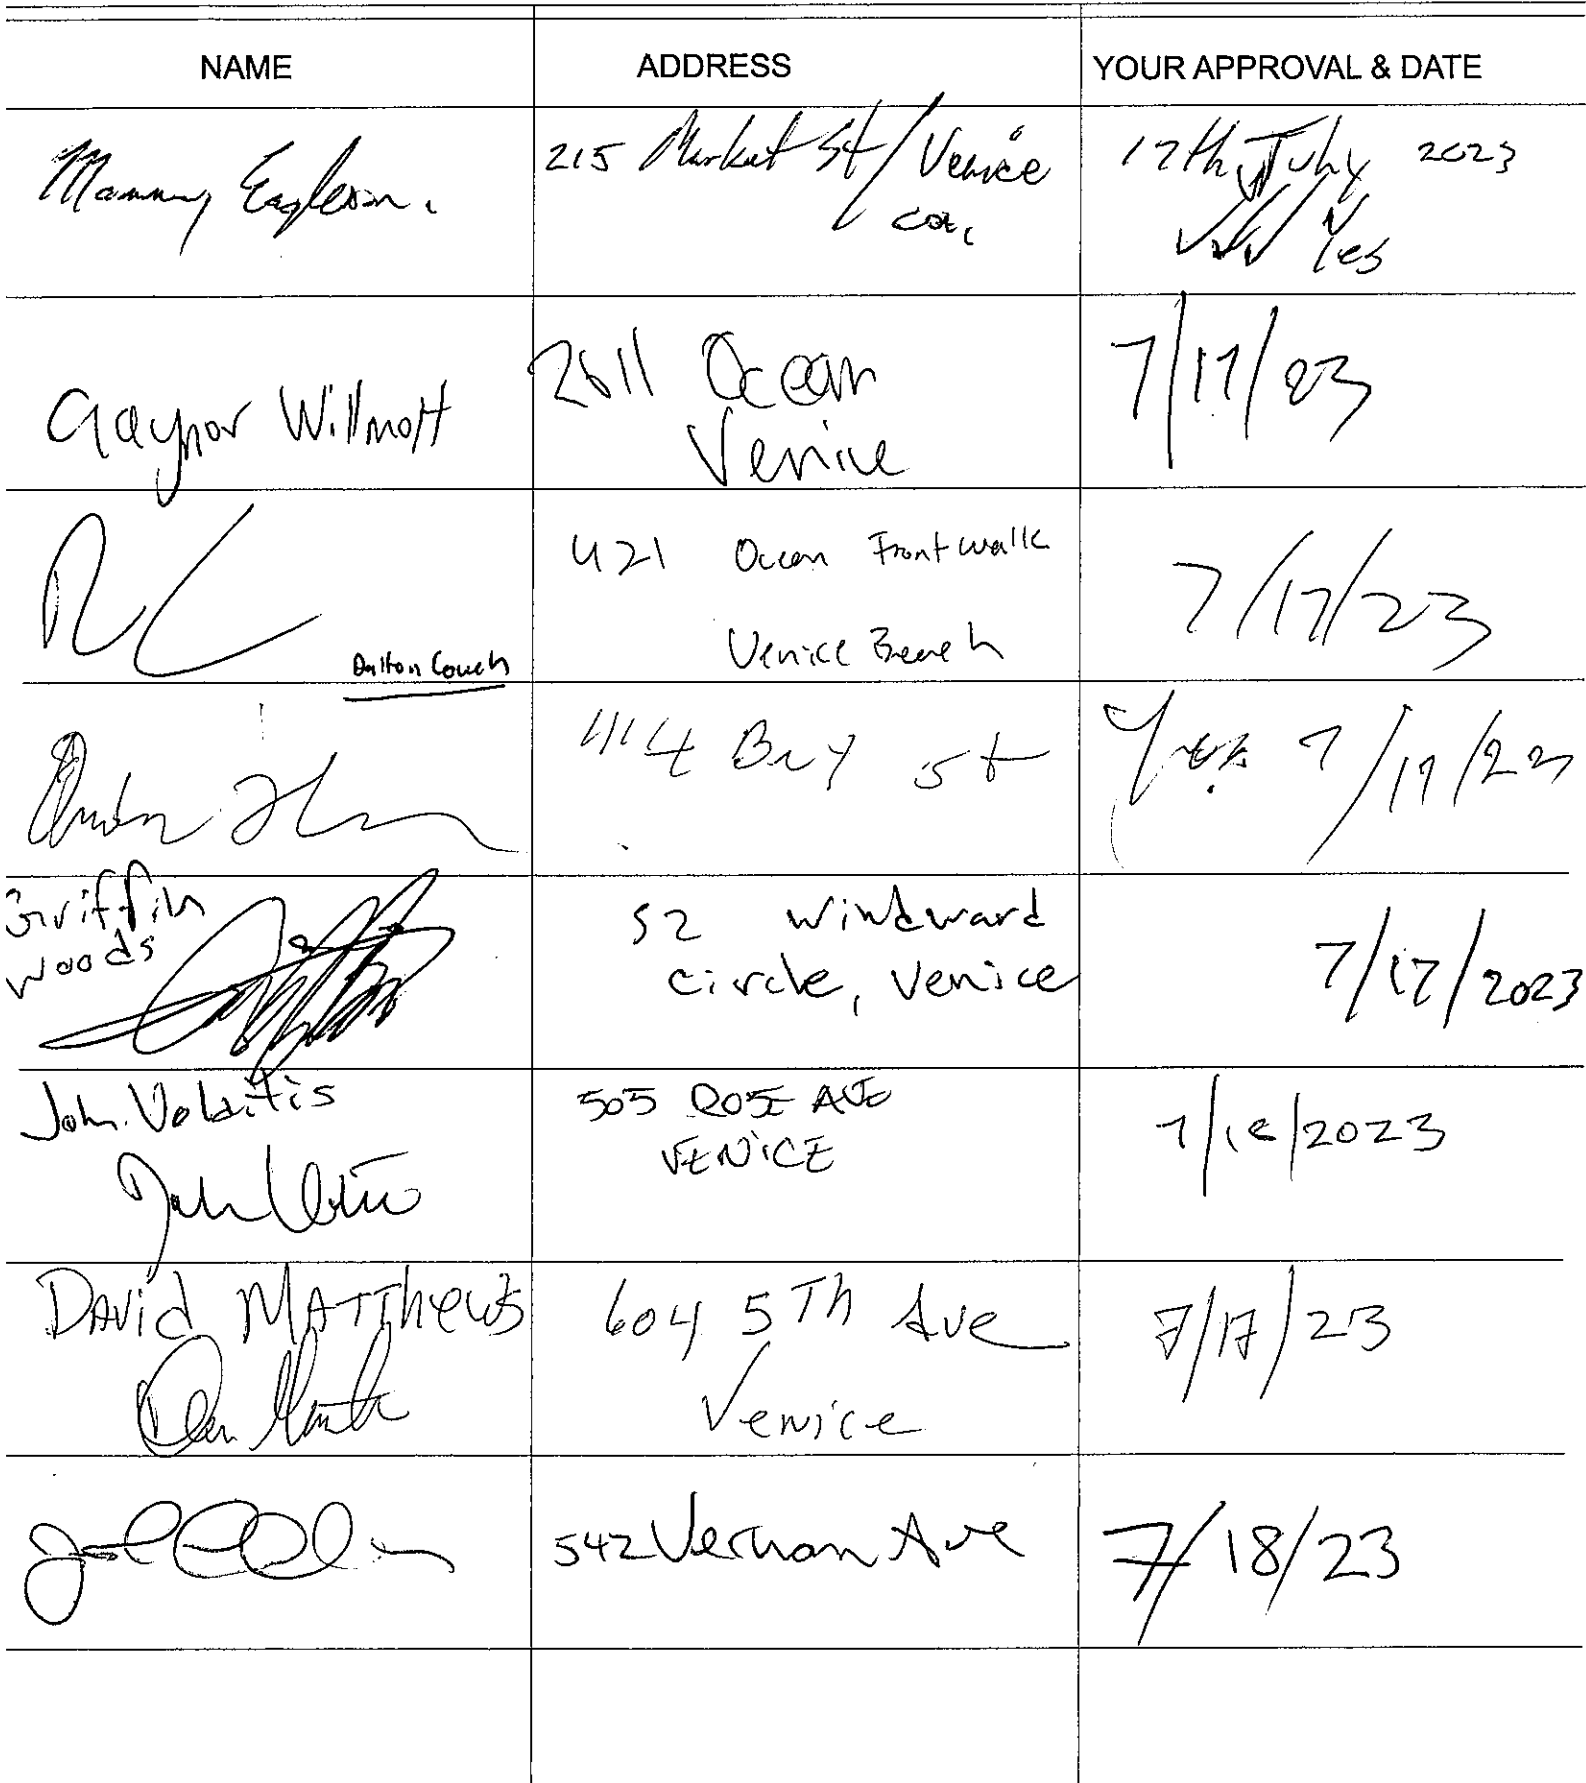 NAME ADDRESS YOUR APPROVAL & DATE
215 Market St / Venice
17th July 2023
Yes
Gaynor Willmott
2611 Ocean
Venice
7/17/23
Dalton Couch
421 Ocean Front walk
Venice Beach
7/17/23
Bay St
Yes 7/17/23
Griffin
Woods
52 Windward
Circle, Venice
7/17/2023
John Volaitis
505 ROSE AVE
VENICE
7/18/2023
DAviD MATThews
604 5Th Ave
Venice
7/17/23
542 Vernon Ave
7/18/23